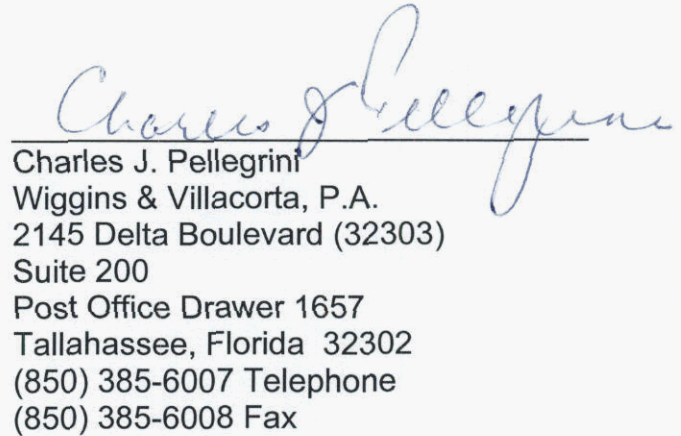 Charles J Pellegrini
Charles J. Pellegrini
Wiggins & Villacorta, P.A.
2145 Delta Boulevard (32303)
Suite 200
Post Office Drawer 1657
Tallahassee, Florida 32302
(850) 385-6007 Telephone
(850) 385-6008 Fax